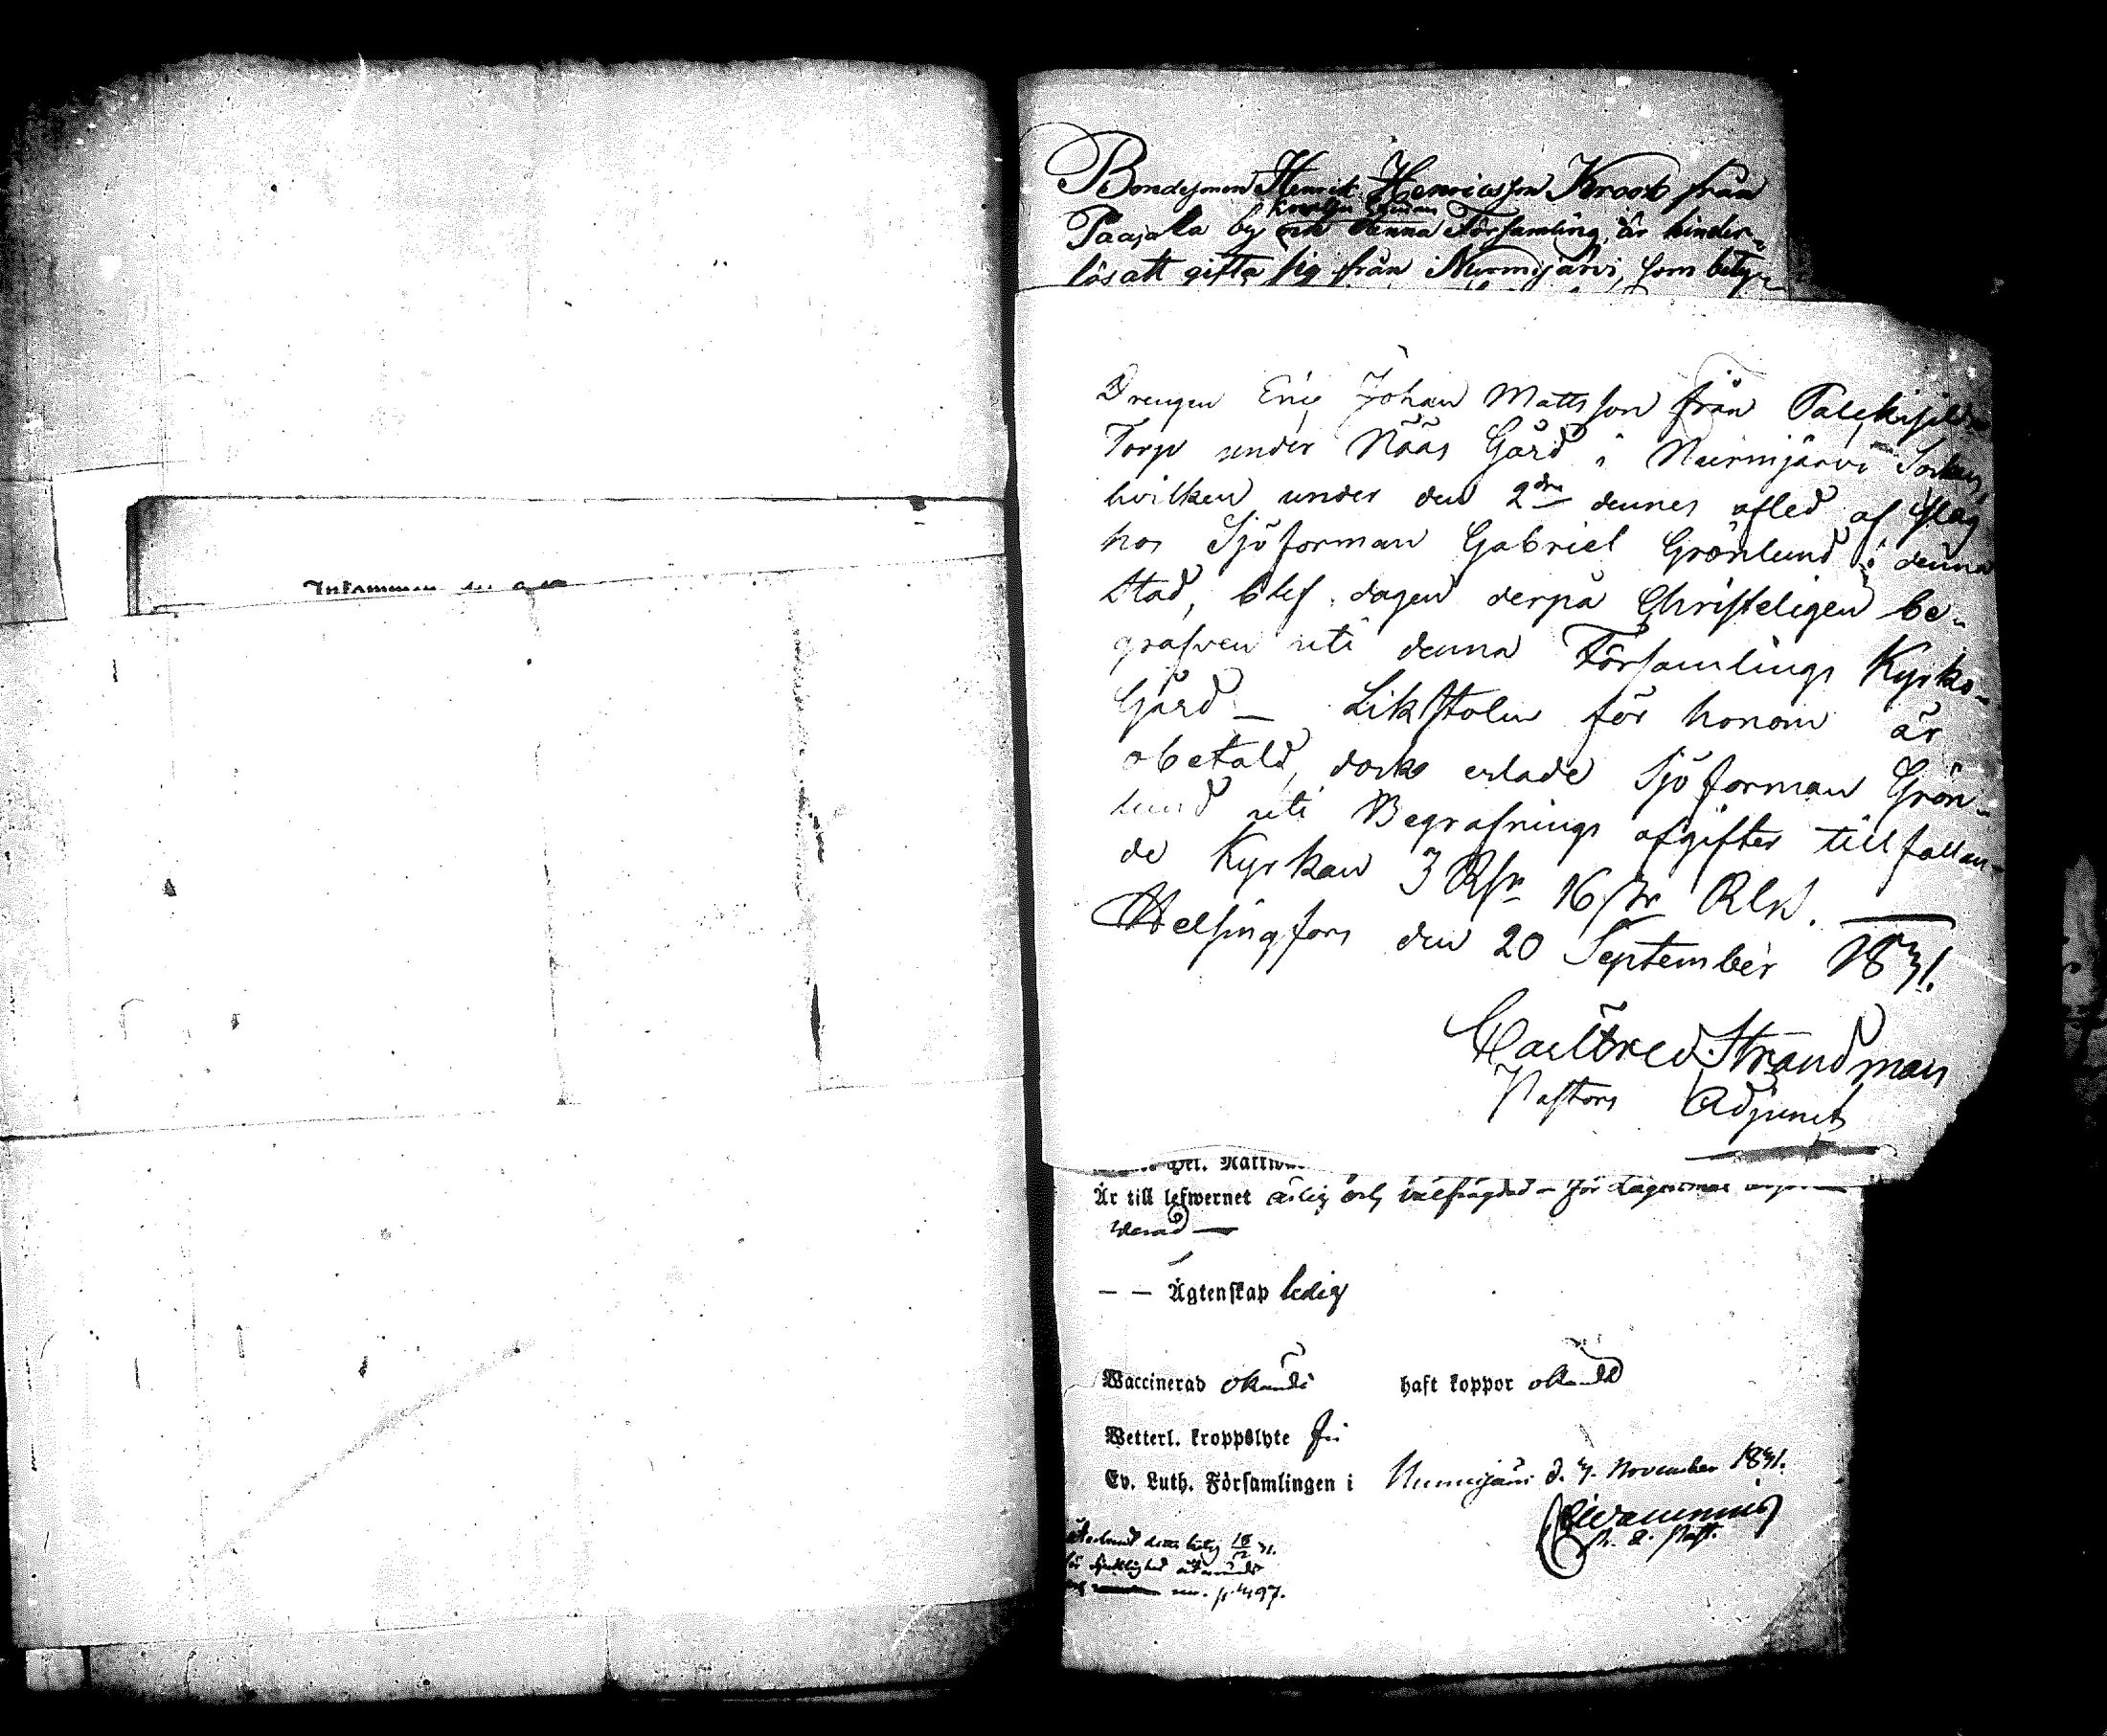 Inkommen
Bondesonen Henrik Henricsson Krook från
Paajala by och denna Församling, är hinder-
lös att gifta sig från Nurmijärvi, som bety-
Drengen Eric Johan Mattsson från
Torp under Nääs Gård i Nurmijärvi Socken,
hvilken under den 2dra dennes afled af slag
hos Sjöforman Gabriel Grönlund i denna
stad, blef dagen derpå Christeligen be-
grafven uti denna Församlings Kyrko-
Gård – Likstolen för honom är
obetald, dock erlade Sjöforman Grön-
lund uti Begrafnings afgifter tillfallan-
de Kyrkan 3 Rbr 16 Rbr.
Helsingfors den 20 September 1831.
Carl Fred. Strandman
Pastors Adjunct
Är till lefwernet ärlig och välfrägdad – för
– – Ägtenskap ledig
Vaccinerad okändt haft koppor okändt
Vetterl. kroppslyte fri
Ev. Luth. Församlingen i Nurmijärvi d. 7. November 1831.
p. 497.